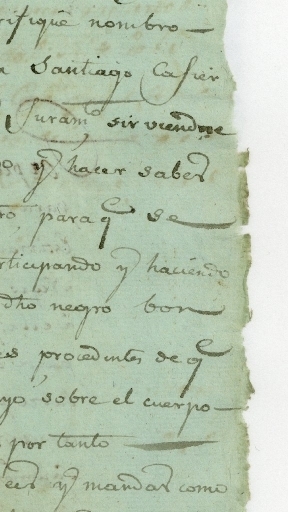 rifique nombro
a Santiago Casier
Juramto sirviendose
o y hacer saber
ro, para q.e se
rticipando y haciendo
dho negro bon
es procedentes de q.e
yo, sobre el cuerpo
por tanto
ces y mandar como